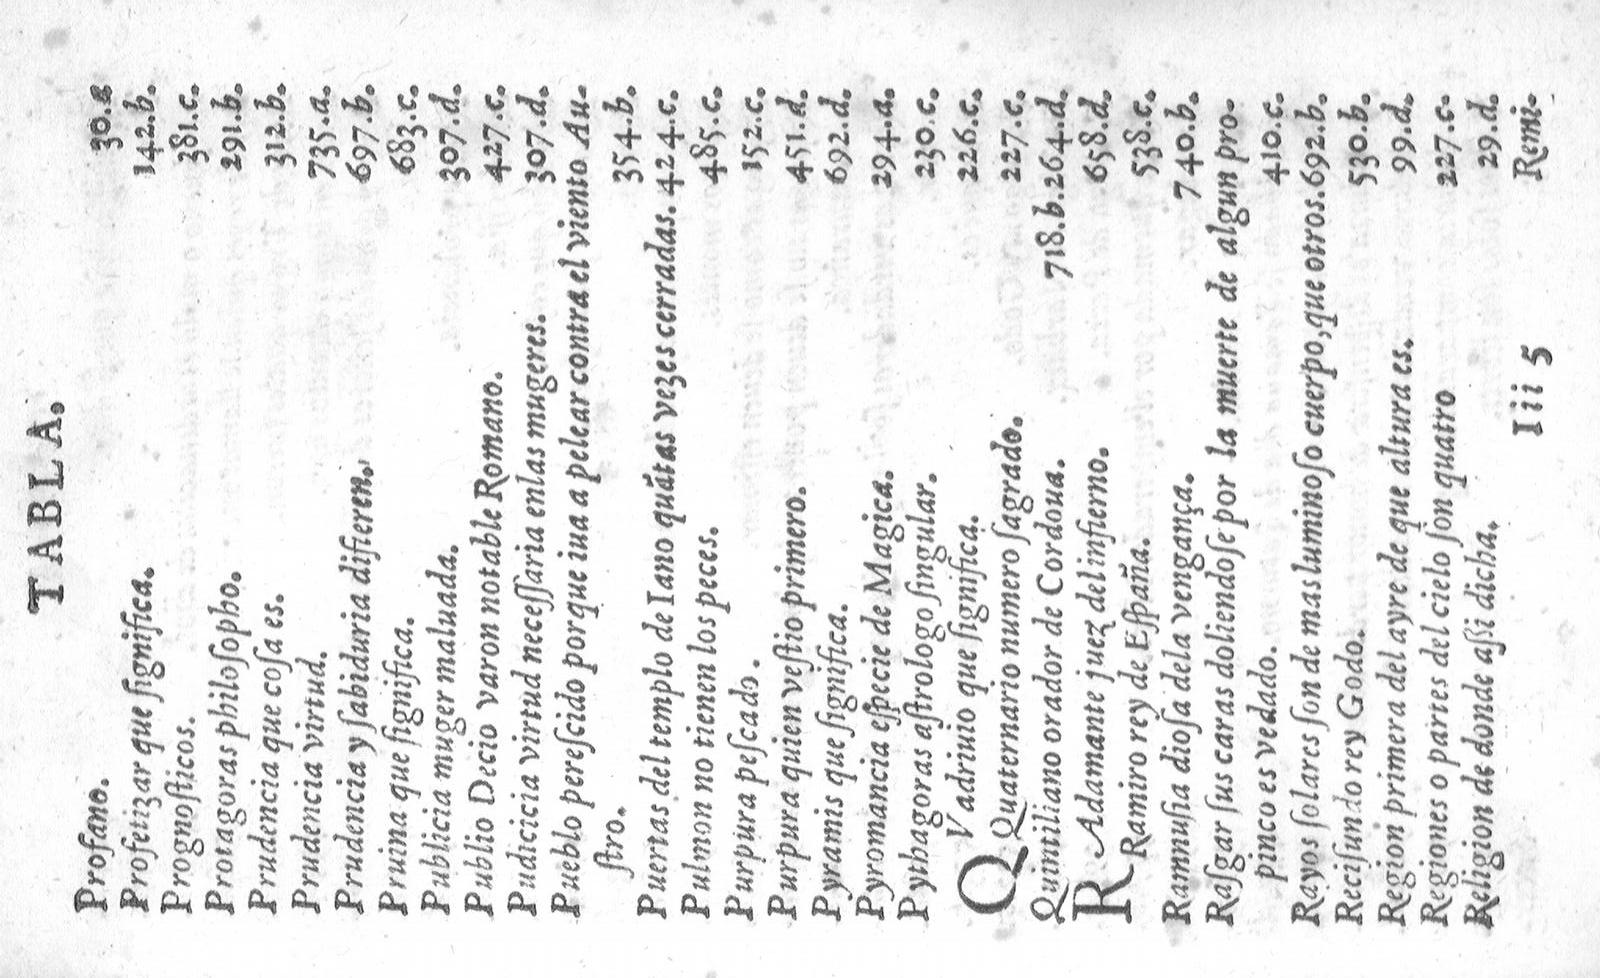 TABLA.
Profano. 30.a
Profetizar que ſignifica. 142.b.
Prognoſticos. 381.c.
Protagoras philoſopho. 291.b.
Prudencia que coſa es. 312.b.
Prudencia virtud. 735.a.
Prudencia y ſabiduria difieren. 697.b.
Pruina que ſignifica. 683.c.
Publicia muger maluada. 307.d.
Publio Decio varon notable Romano. 427.c.
Pudicicia virtud neceſſaria enlas mugeres. 307.d.
Pueblo pereſcido porque iua a pelear contra el viento Au-
ſtro. 354.b.
Puertas del templo de Iano quátas vezes cerradas. 424.c.
Pulmon no tienen los peces. 485.c.
Purpura peſcado. 152.c.
Purpura quien veſtio primero. 451.d.
Pyramis que ſignifica. 692.d.
Pyromancia eſpecie de Magica. 294.a.
Pythagoras aſtrologo ſingular. 230.c.
QVadriuio que ſignifica. 226.c.
Quaternario numero ſagrado. 227.c.
Quintiliano orador de Cordoua. 718.b.264.d.
RAdamante juez del infierno. 658.d.
Ramiro rey de Eſpaña. 538.c.
Ramnuſia dioſa dela vengança. 740.b.
Raſgar ſus caras doliendoſe por la muerte de algun pro-
pinco es vedado. 410.c.
Rayos ſolares ſon de mas luminoſo cuerpo, que otros. 692.b.
Reciſundo rey Godo. 530.b.
Region primera del ayre de que altura es. 99.d.
Regiones o partes del cielo ſon quatro 227.c.
Religion de donde aſſi dicha. 29.d.
Iii 5 Remi-